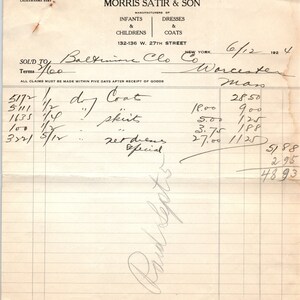 MORRIS SATIR & SON
MANUFACTURERS OF
INFANTS & CHILDRENS
DRESSES & COATS
132-136 W. 27TH STREET
NEW YORK 6/12 1924
SOLD TO Baltimore Clo Co
Terms 7/60 Worcester
Mass
ALL CLAIMS MUST BE MADE WITHIN FIVE DAYS AFTER RECEIPT OF GOODS
5172 1 dz Coats 28 50
5111 1/2 " " 18.00 9 00
1635 1/4 " skirts 5.00 1 25
100 1/2 " " 3.75 1 88
3221 5/12 " 27.00 11 25
Special 51 88
2 95
48 93